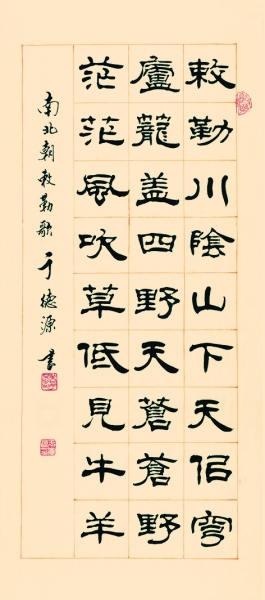 敕勒川陰山下天佀穹
廬籠盖四野天蒼蒼野
茫茫風吹草低見牛羊
南北朝敕勒歌 于德源書